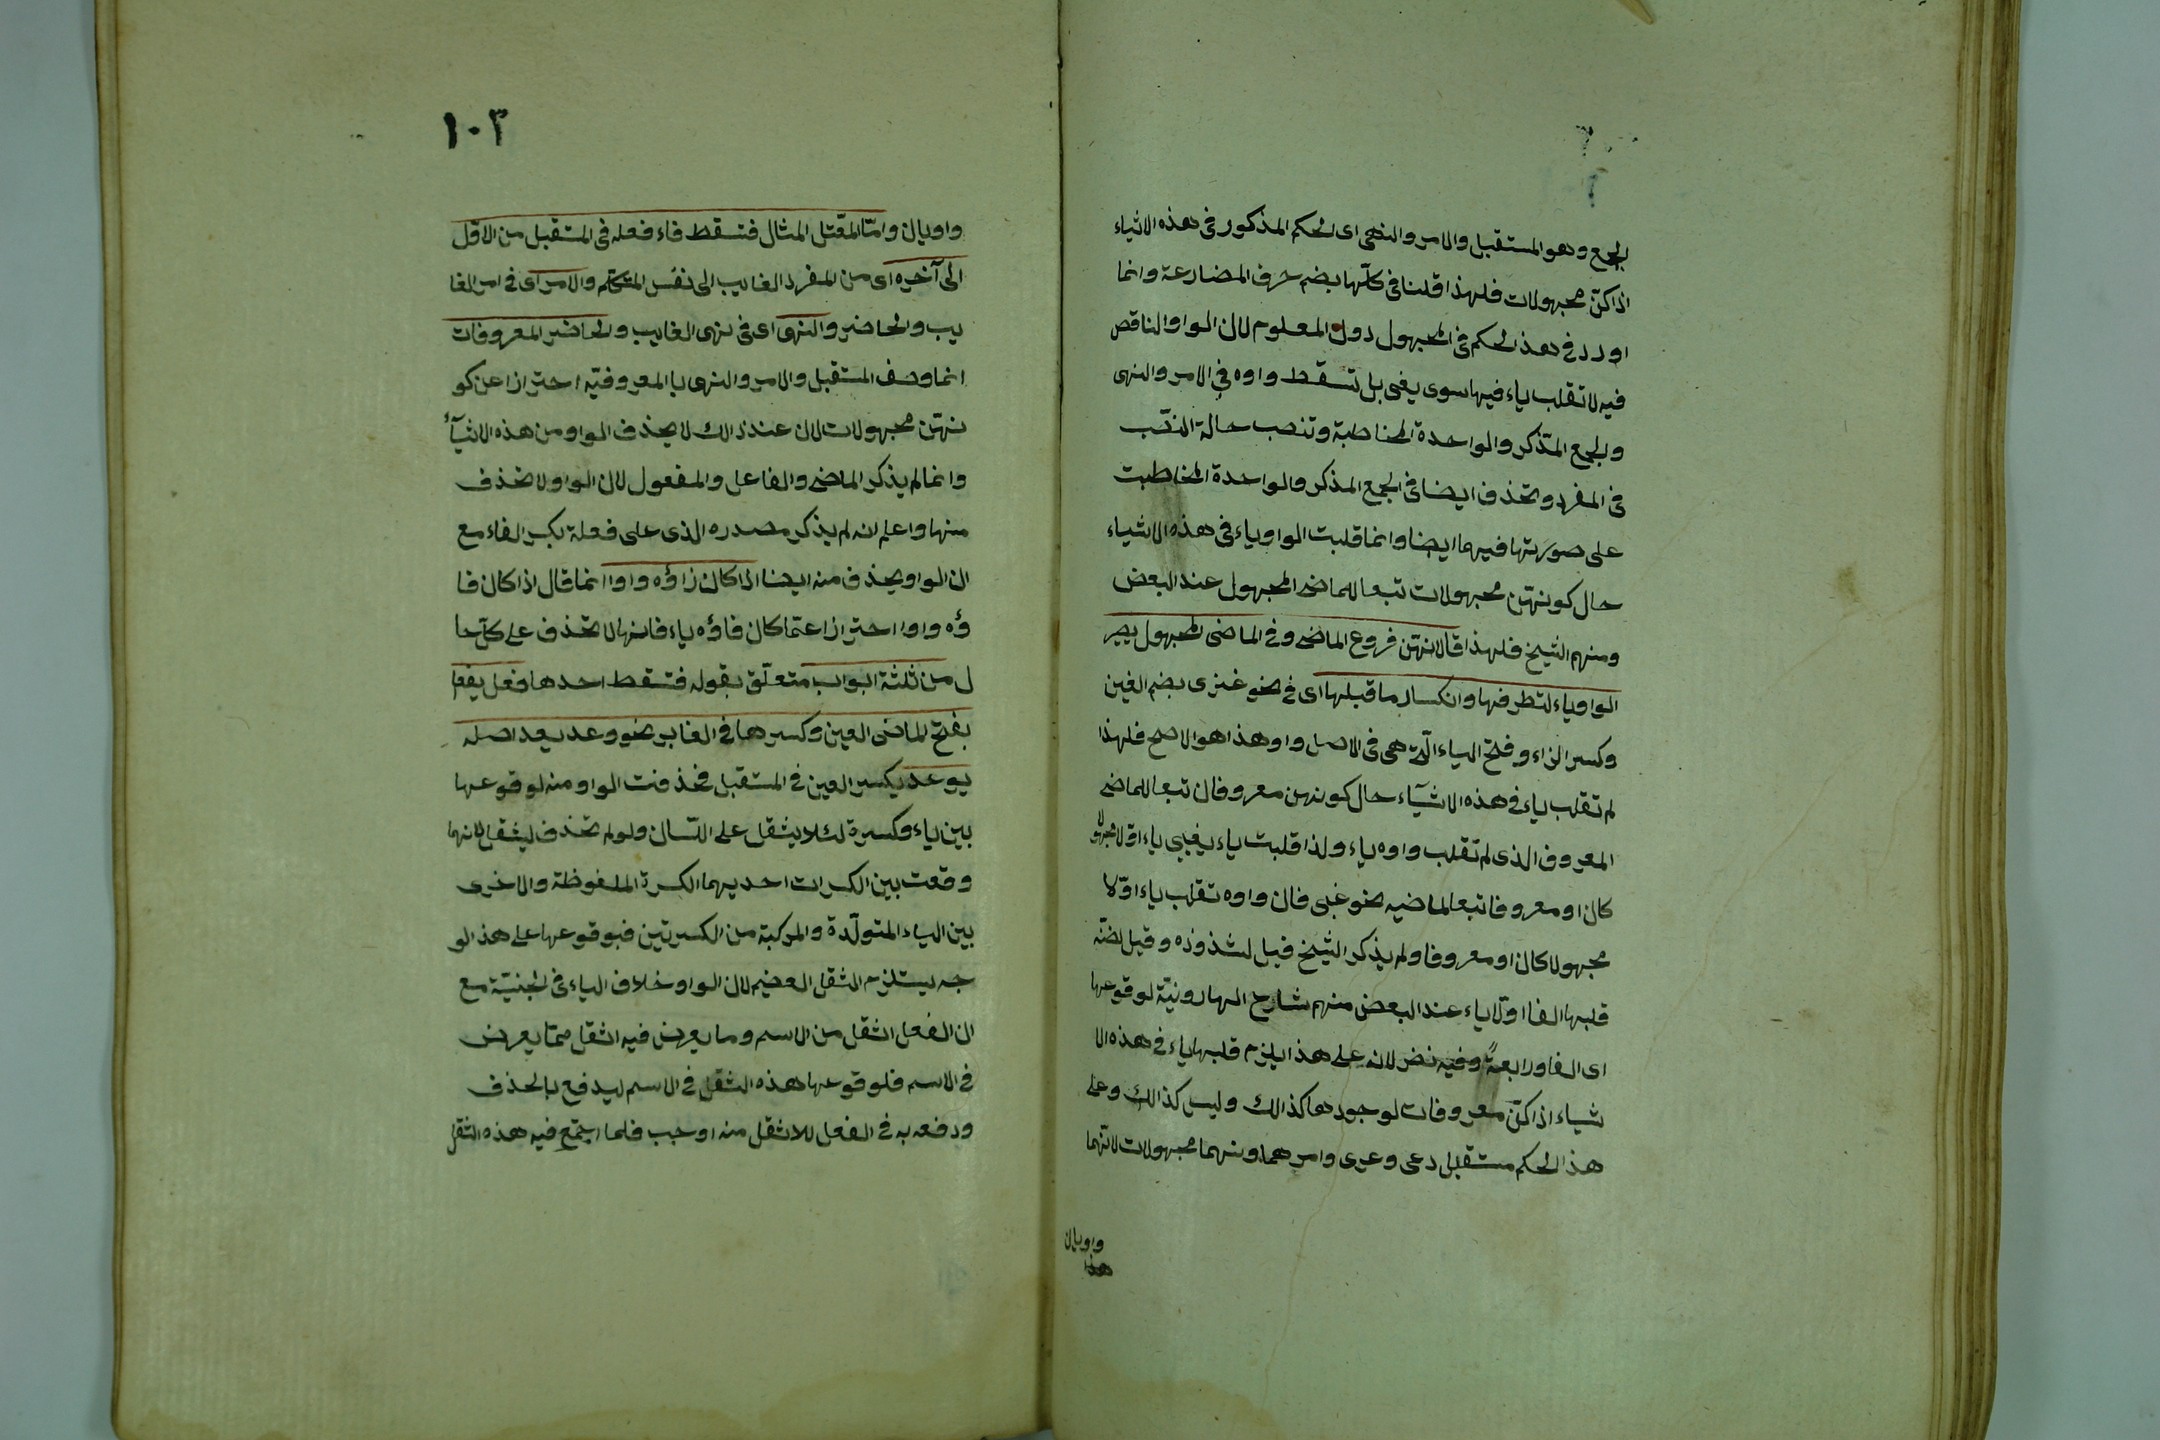 الجمع وهو المستقبل والامر والنهى اى الحكم المذكور فى هذه الاشياء
اذا كنّ مجهولات فلهذا قلنا فى كلّها بضم حرف المضارعة وانما
اورد فى هذ الحكم فى المجهول دون المعلوم لان الواو الناقص
فيه لا تقلب ياء فيها سوى يغبى بل تسقط واوه فى الامر والنهى
والجمع المذكر والواحدة المخاطبة وتنصب حالة النصب
فى المفرد وتحذف ايضا فى الجمع المذكر والواحدة المخاطبت
على صورتها فيهما ايضا وانما قلبت الواو ياء فى هذه الاشياء
حال كونهنّ مجهولات تبعا للماضى المجهول عند البعض
ومنهم الشيخ فلهذا قال لانهنّ فروع الماضى وفى الماضى المجهول يصير
الواو ياء لتطرفها وانكسار ما قبلها اى فى نحو غزى بضم الغين
وكسر الزاء وفتح الياء الّتى هى فى الاصل واو هذا هو الاصح فلهذا
لم تقلب ياء فى هذه الاشيآء حال كونهن معروفان تبعا للماضى
المعروف الذى لم تقلب واوه ياء ولذا قلبت ياء يغبى ياء اوّلا مجهولا
كان او معروفا تبعا لماضيه نحو غبى فان واوه تقلب ياء اوّلا
مجهولا كان او معروفا ولم يذكر الشيخ قيل لشذوذه وقيل لضنّه
قلبها الفا اوّلا ياء عند البعض منهم شارح الهارونيّة لوقوعها
اى الفا ورابعةً وفيه نضر لانه على هذا يلزم قلبها ياء فى هذه الا
شياء اذا كنّ معروفات لوجودها كذالك وليس كذالك وعلى
هذ الحكم مستقبل دعى وعرى وامرهما ونهما مجهولات لانّهما
واويان
هذا
١٠٣
واويان وامّا المعّتل المثال فتسقط فاء فعله فى المستقبل من الاوّل
الى آخره اى من المفرد الغايب الى نفس المتكلم والامر اى فى امر الغا
يب والحاضر والنهى اى فى نهى الغايب والحاضر المعروفات
انما وصف المستقبل والامر والنهى بالمعروفيّه احترازا عن كو
نهنّ مجهولات لان عند ذالك لا يحذف الواو من هذه الاشيآء
وانما لم يذكر الماضى والفاعل والمفعول لان الواو لا تحذف
منها واعلم انه لم يذكر مصدره الذى على فعلة بكسر الفاء مع
ان الواو يحذف منه ايضا اذا كان زاؤه واوا انما قال اذا كان فا
ؤه واوا احترازا عمّا كان فاؤه ياء فانها لا تحذف على كلّ حا
ل من ثلثة ابواب متعلّق بقوله فتسقط احدها فعل يفعل
بفتح الماضى العين وكسرها فى الغابر نحو وعد يعد اصله
يوعد بكسر العين فى المستقبل فحذفت الواو منه لوقوعها
بين ياء وكسرة لئلا يثقل على اللسان ولو لم تحذف ليثقل لانها
وقعت بين الكسرات احديهما الكسرة الملفوظة والاخرى
بين الياء المتولّدة والمركبة من الكسرتين فبوقوعها على هذ الو
جه يستلزم الثقل العضيم لان الواو خلاف الياء فى الجنسيّة مع
ان الفعل اثقل من الاسم وما يعرض فيه اثقل ممّا يعرض
فى الاسم فلو وقوعها هذه الثقل فى الاسم ليدفع بالحذف
ودفعه به فى الفعل للاثقل منه اوجب فلما اجتمع فيه هذه الثقل